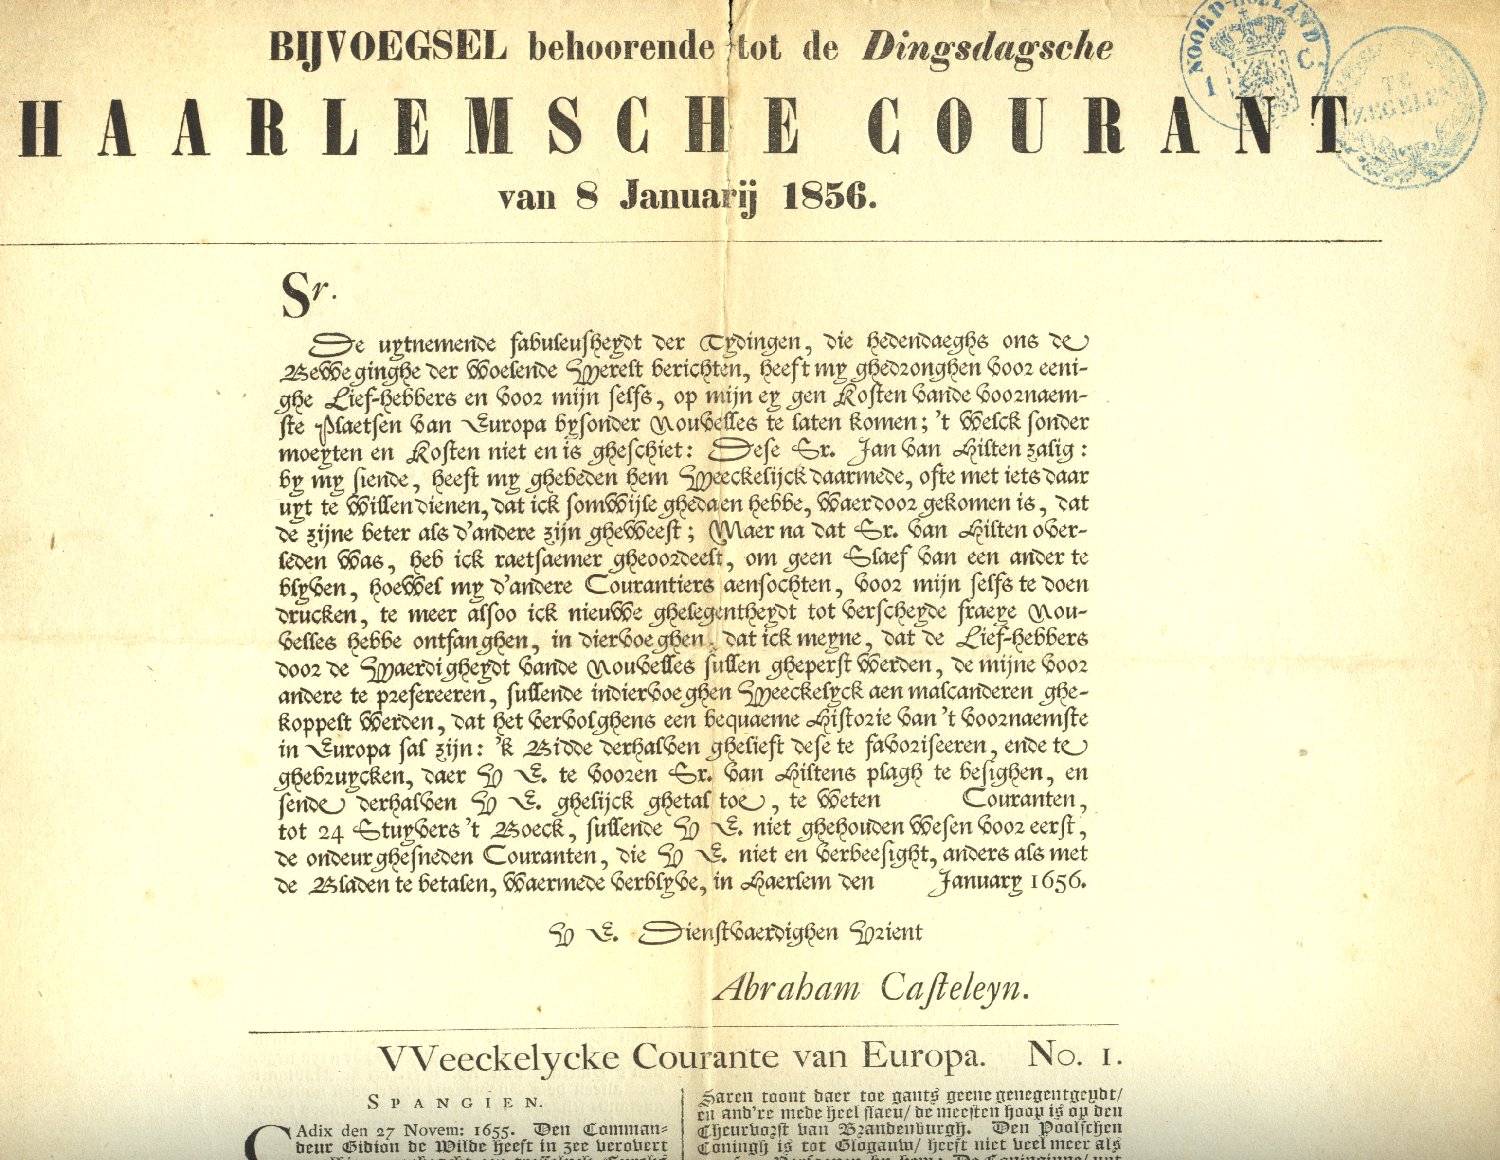 BIJVOEGSEL behoorende tot de Dingsdagsche
HAARLEMSCHE COURANT
van 8 Januarij 1856.
NOORD-HOLLAND
1 C.
TE
ZEGELEN
Sr.
De uytnemende fabuleusheydt der Tydingen, die hedendaeghs ons de
Beweginghe der woelende Werelt berichten, heeft my ghedronghen voor eeni-
ghe Lief-hebbers en voor mijn selfs, op mijn eygen Kosten vande voornaem-
ste Plaetsen van Europa bysonder Nouvelles te laten komen; 't welck sonder
moeyten en Kosten niet en is gheschiet: Dese Sr. Jan van Hilten zalig:
by my siende, heeft my ghebeden hem Weeckelijck daarmede, ofte met iets daar
uyt te willen dienen, dat ick somwijle ghedaen hebbe, waer door gekomen is, dat
de zijne beter als d'andere zijn gheweest; Maer na dat Sr. van Hilten over-
leden was, heb ick raetsaemer gheoordeelt, om geen Slaef van een ander te
blyven, hoewel my d'andere Courantiers aensochten, voor mijn selfs te doen
drucken, te meer alsoo ick nieuwe ghelegentheydt tot verscheyde fraeye Nou-
velles hebbe ontfanghen, in diervoeghen, dat ick meyne, dat de Lief-hebbers
door de Waerdigheydt vande Nouvelles sullen gheperst werden, de mijne voor
andere te prefereeren, sullende indiervoeghen Weeckelyck aen malcanderen ghe-
koppelt werden, dat het vervolghens een bequaeme Historie van 't voornaemste
in Europa sal zijn: 'k Bidde derhalven ghelieft dese te favoriseeren, ende te
ghebruycken, daer V E. te vooren Sr. van Hiltens plagh te besighen, en
sende derhalven V E. ghelijck ghetal toe, te weten Couranten,
tot 24 Stuyvers 't Boeck, sullende V E. niet ghehouden wesen voor eerst,
de ondeurghesneden Couranten, die V E. niet en verbeesight, anders als met
de Bladen te betalen, waermede verblyve, in Haerlem den January 1656.
V E. Dienstvaerdighen Vrient
Abraham Casteleyn.
VVeeckelycke Courante van Europa. No. 1.
SPANGIEN.
CAdix den 27 Novem: 1655. Den Comman-
deur Gidion de Wilde heeft in zee verovert
Saren toont daer toe gants geene genegentheydt/
en and're mede heel slaeu/ de meesten hoop is op den
Cheurvorst van Brandenburgh. Den Poolschen
Coningh is tot Glogauw/ heeft niet veel meer als